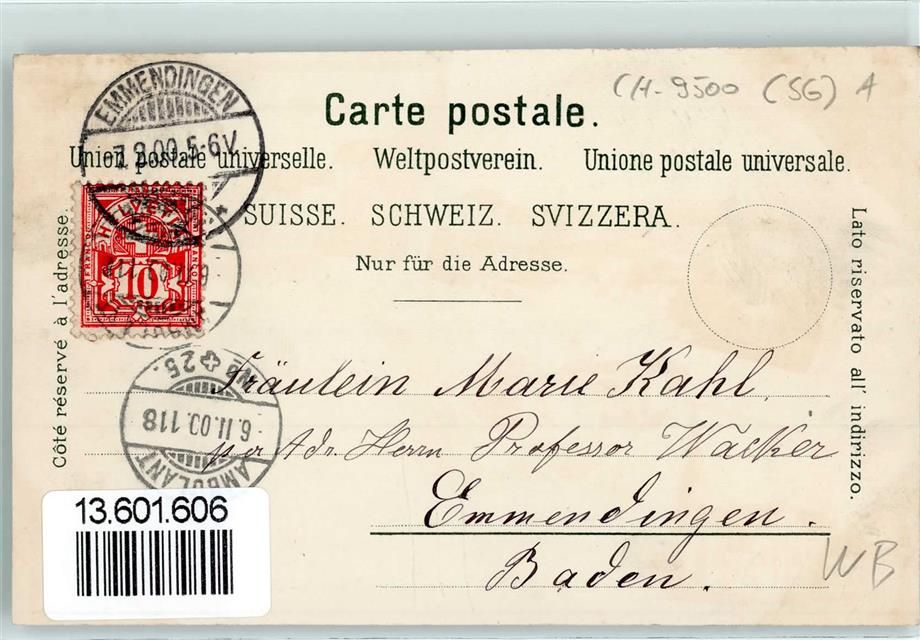 CH-9500 (SG) A
EMMENDINGEN
Carte postale.
Union postale universelle. Weltpostverein. Unione postale universale.
SUISSE. SCHWEIZ. SVIZZERA.
Nur für die Adresse.
Côté réservé à l'adresse.
Lato riservato all' indirizzo.
HELVETIA
10
AMBULANT
No 25.
6.II.00 118
Fräulein Marie Kahl
per Adr. Herrn Professor Wacker
Emmendingen.
Baden.
WB
13.601.606